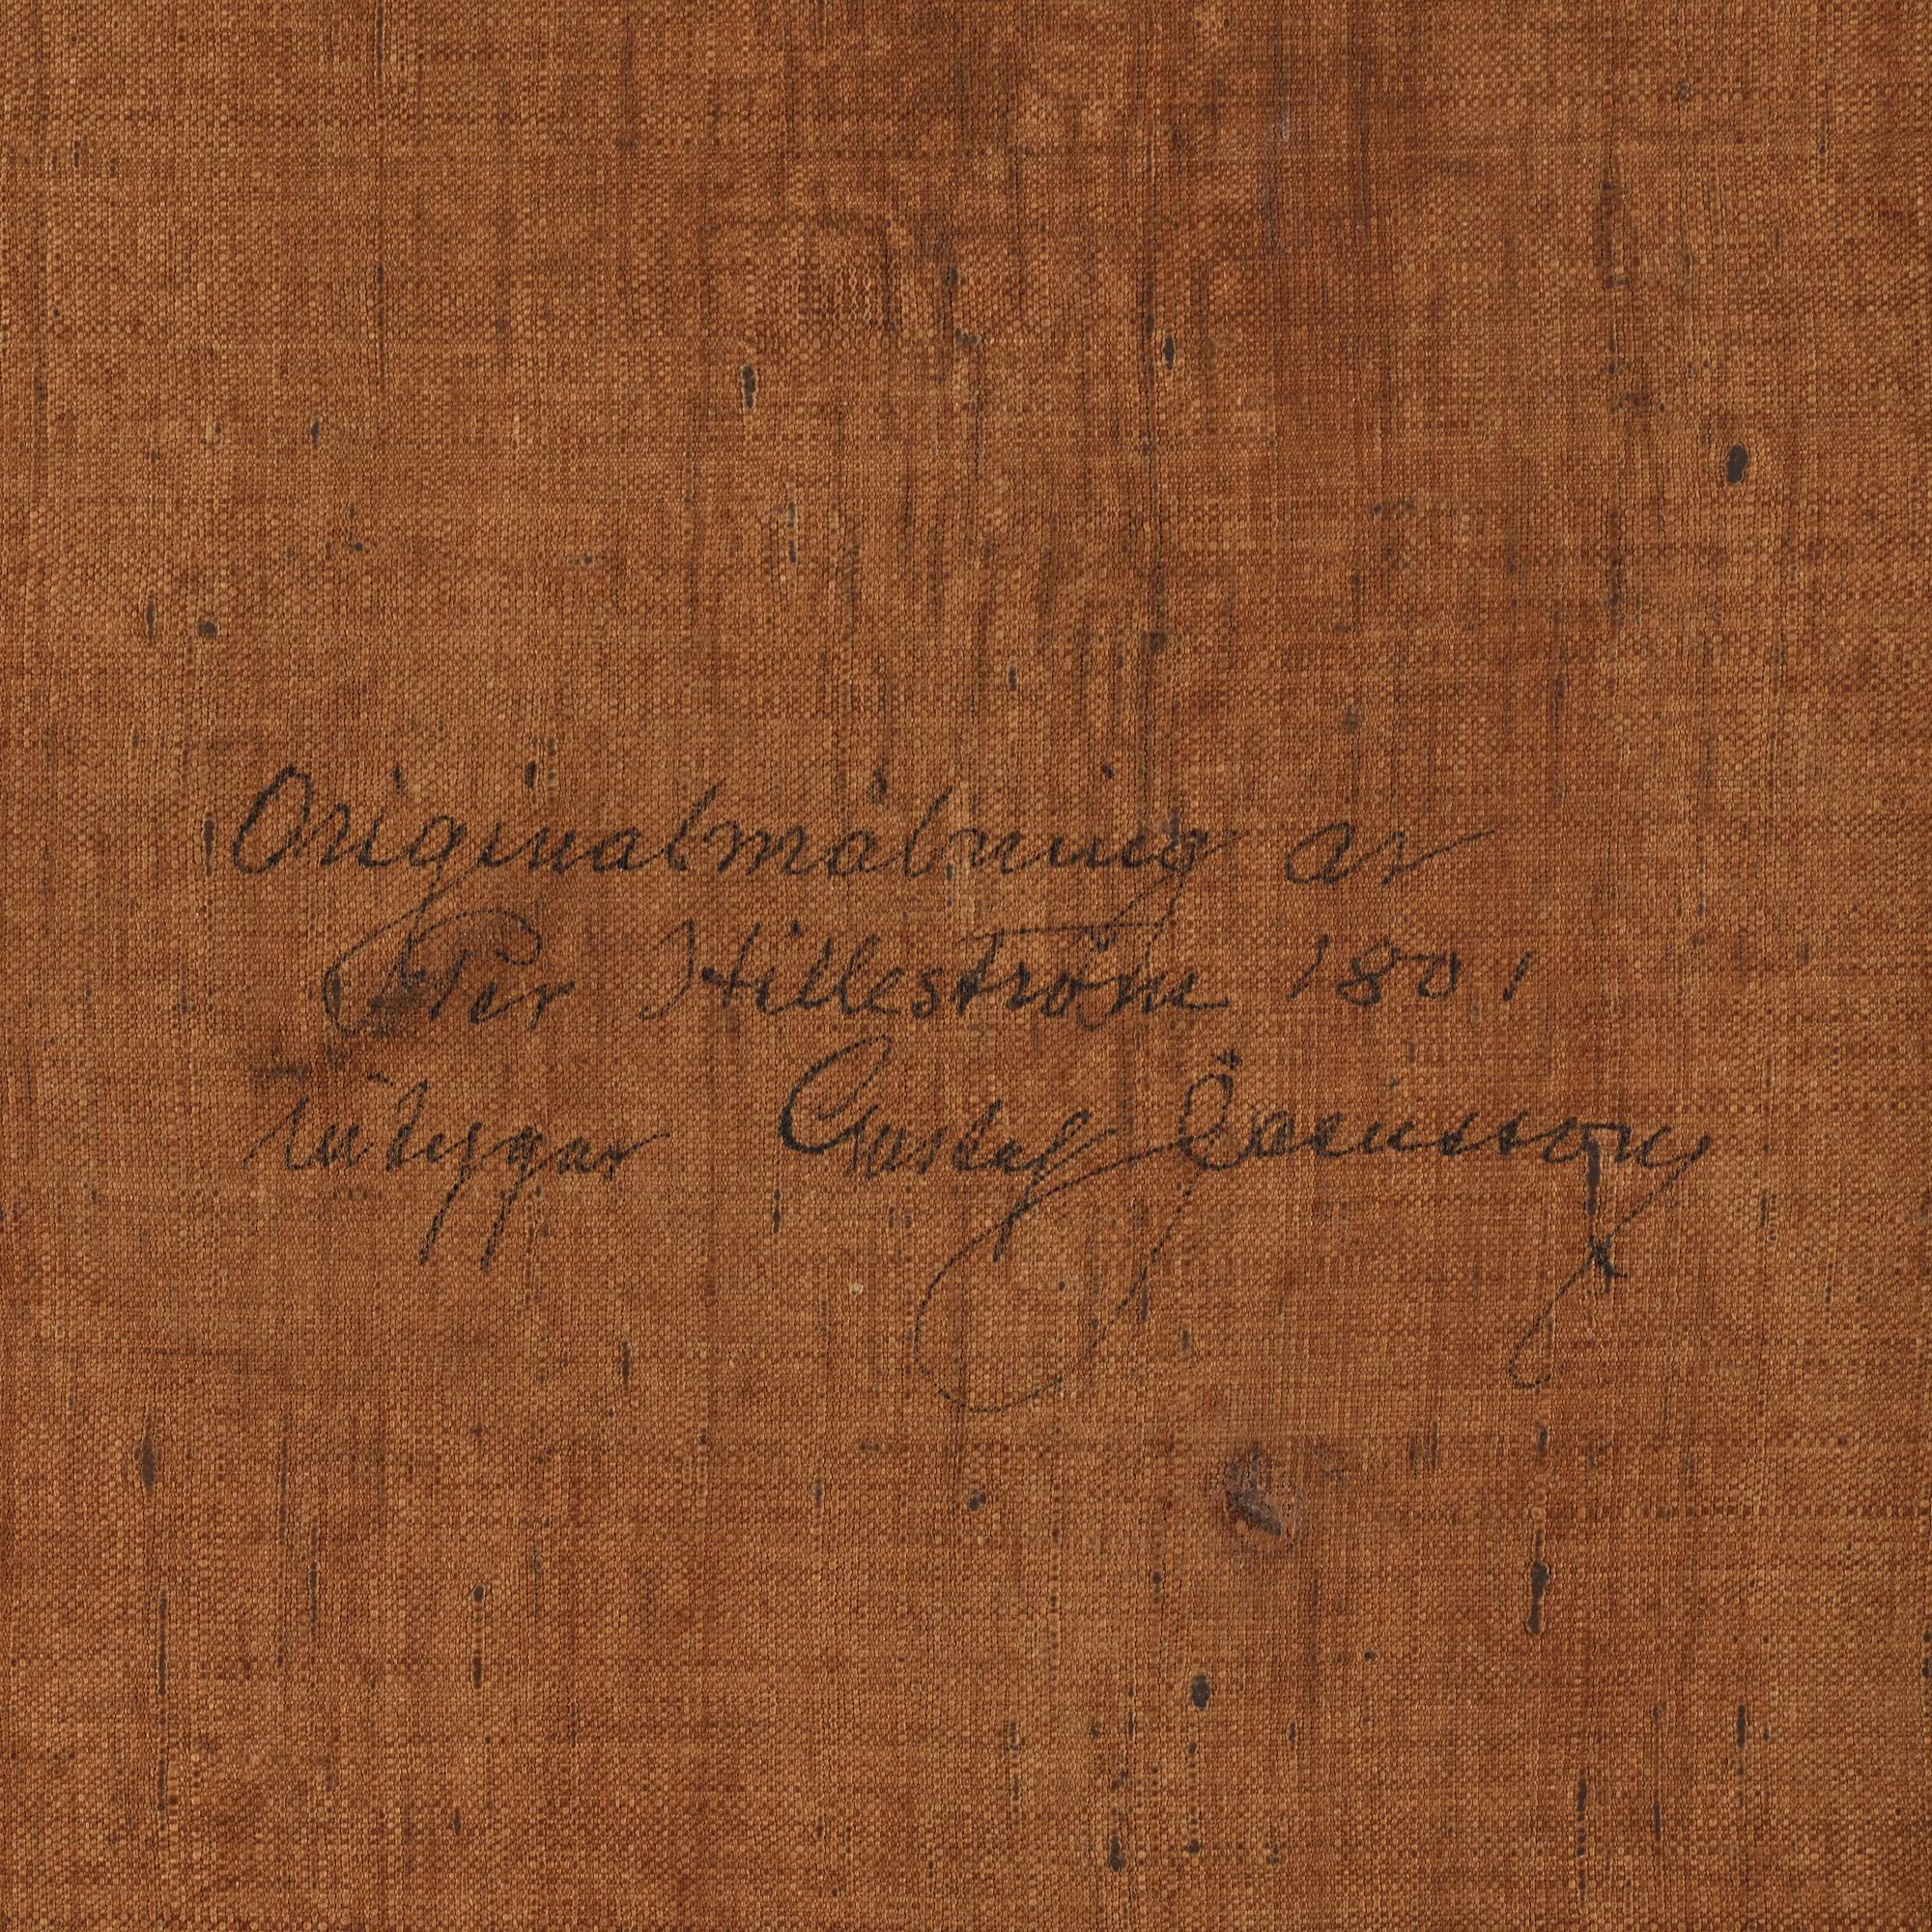 Originalmålning av
Per Hilleström 1801
intygar Gustaf